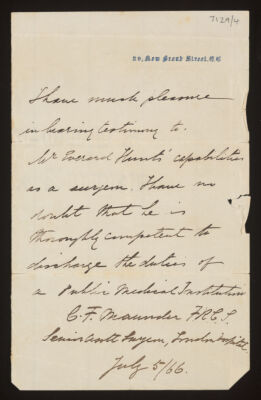 7129/4
29, New Broad Street, E.C.
I have much pleasure
in bearing testimony to
Mr Everard Hunt's capabilities
as a surgeon. I have no
doubt that he is
thoroughly competent to
discharge the duties of
a Public Medical Institution
C. F. Maunder F.R.C.S.
Senior Asstt Surgeon, London Hospital
July 5/66.